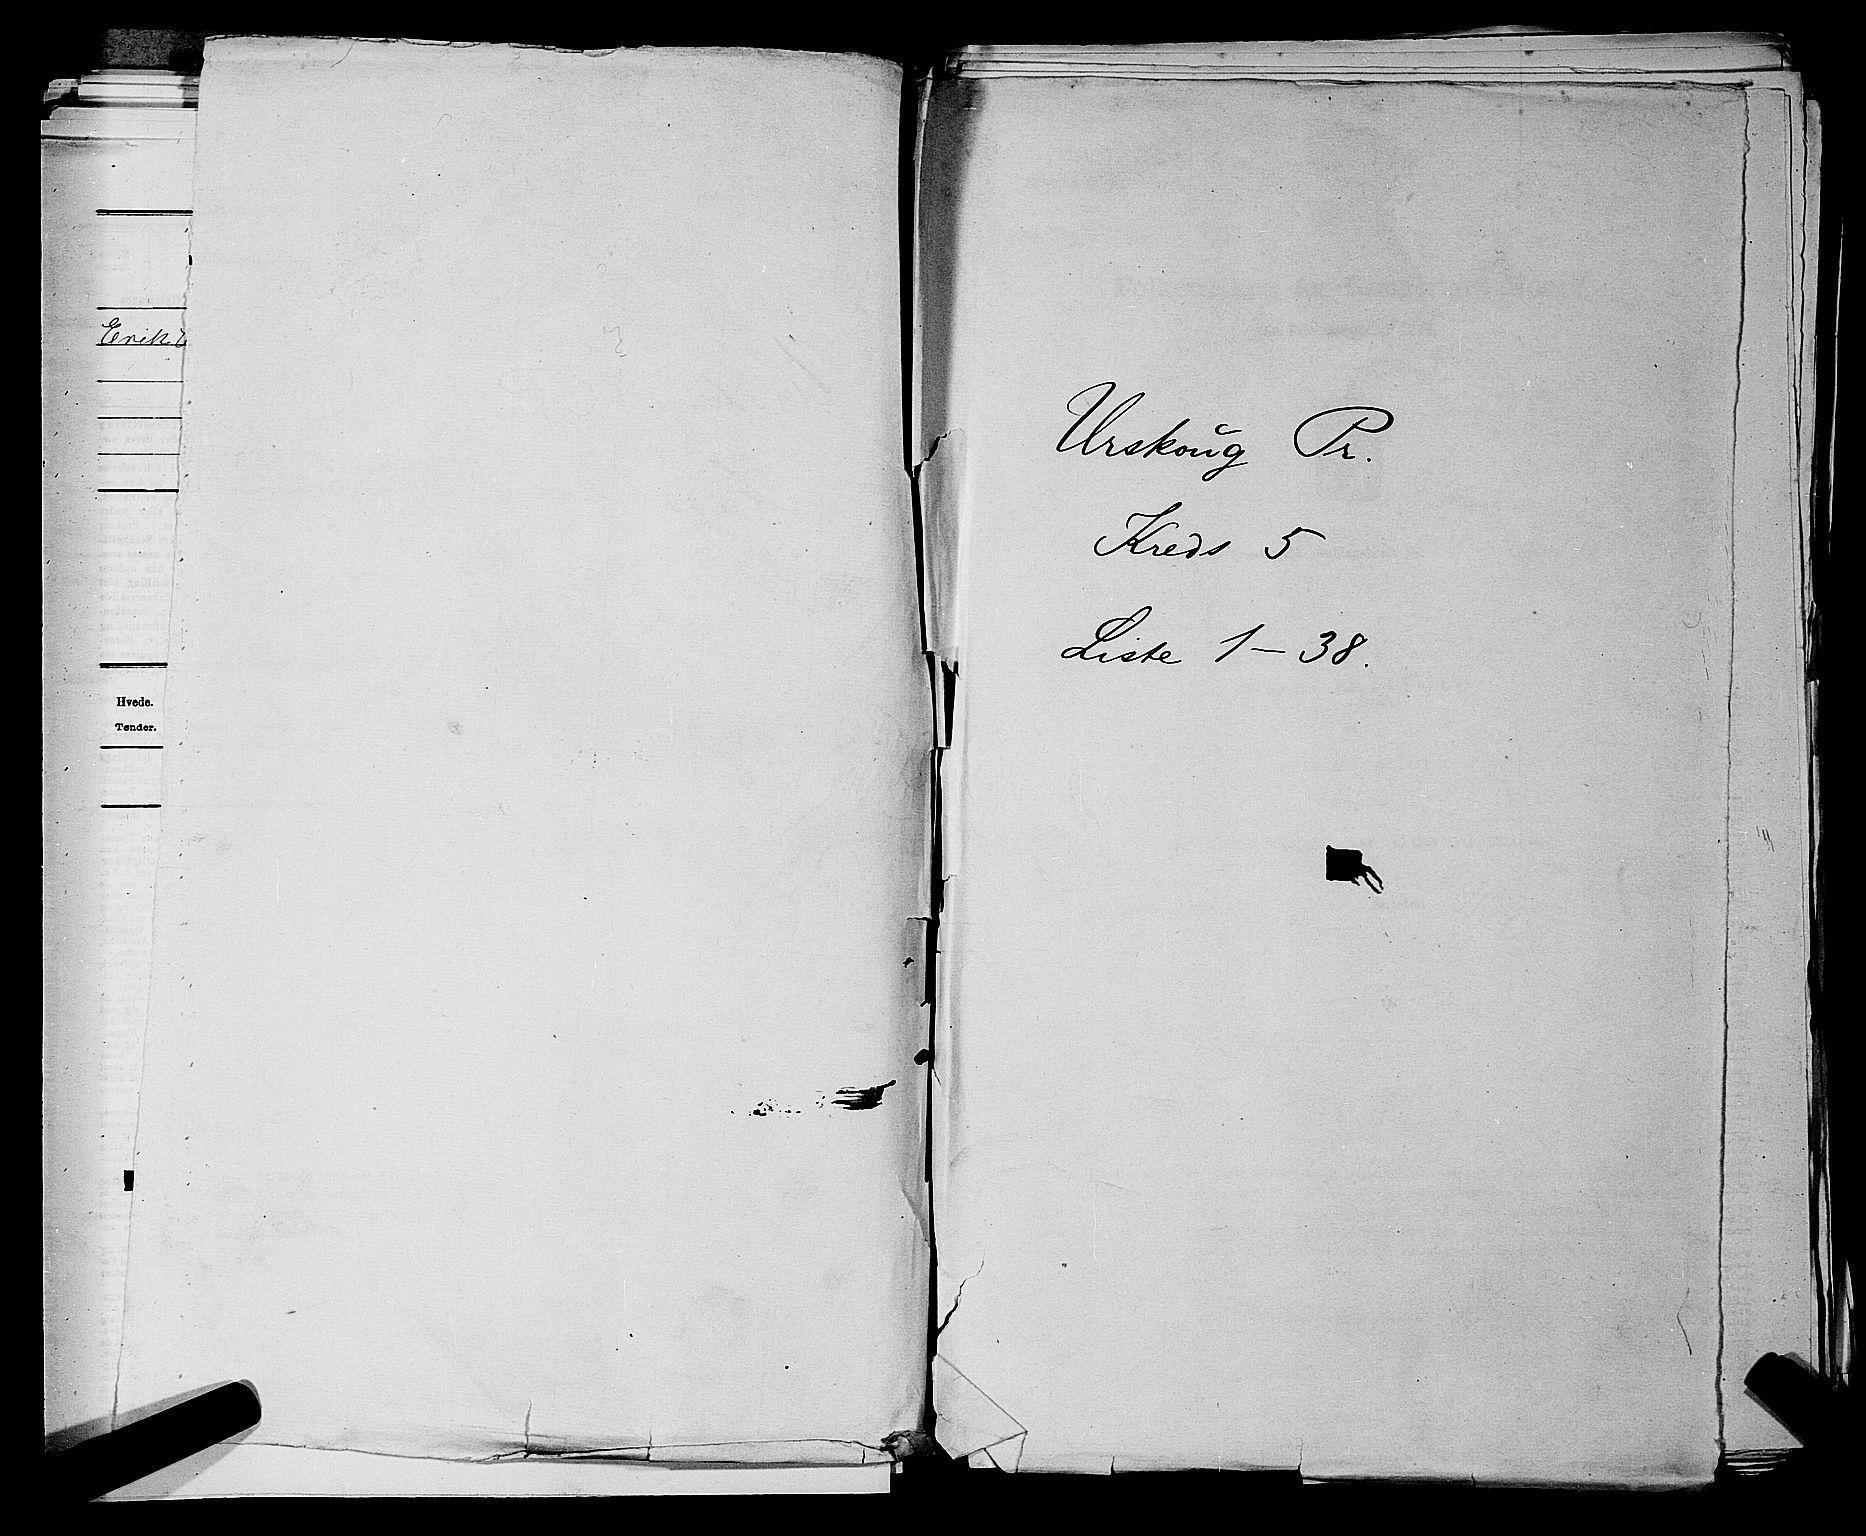 Erik
Hvede.
Tønder.
Urskoŭg Pr.
Kreds 5
Liste 1-38.